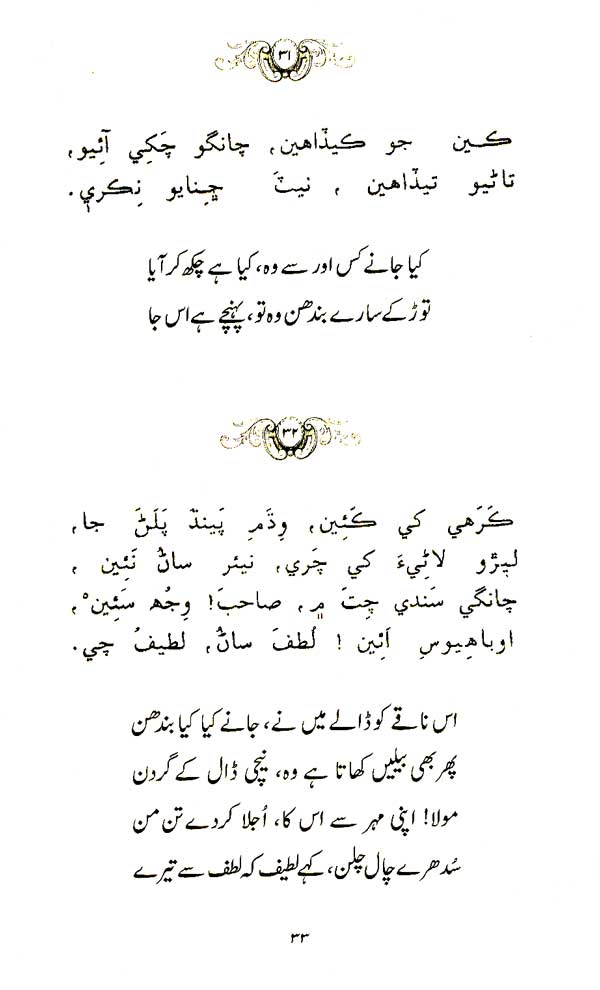 ۳۱
ڪين جو ڪيڏاهين، چانگو چَکِي آئِيو،
تاڻيو تيڏاهين ، نيٽَ ڇِنايو نِڪري.
کیا جانے کس اور سے وہ، کیا ہے چکھ کر آیا
توڑ کے سارے بندھن وہ تو، پہنچے ہے اس جا
۳۲
ڪَرَهي کي ڪَئِين، وِڌَمِ پَينڌَ پَلَڻَ جا،
ليڙو لاڻِيءَ کي چَري، نيئر ساڻُ نَئِين ،
چانگي سَندي چِتَ ۾، صاحبَ! وِجُھ سَئِين،
اوباهِيوسِ اَئِين ! لُطفَ ساڻُ، لطيفُ چي.
اس ناقے کو ڈالے میں نے، جانے کیا کیا بندھن
پھر بھی بیلیں کھاتا ہے وہ، نیچی ڈال کے گردن
مولا! اپنی مہر سے اس کا، اُجلا کر دے تن من
سُدھرے چال چلن، کہے لطیف کہ لطف سے تیرے
۳۳